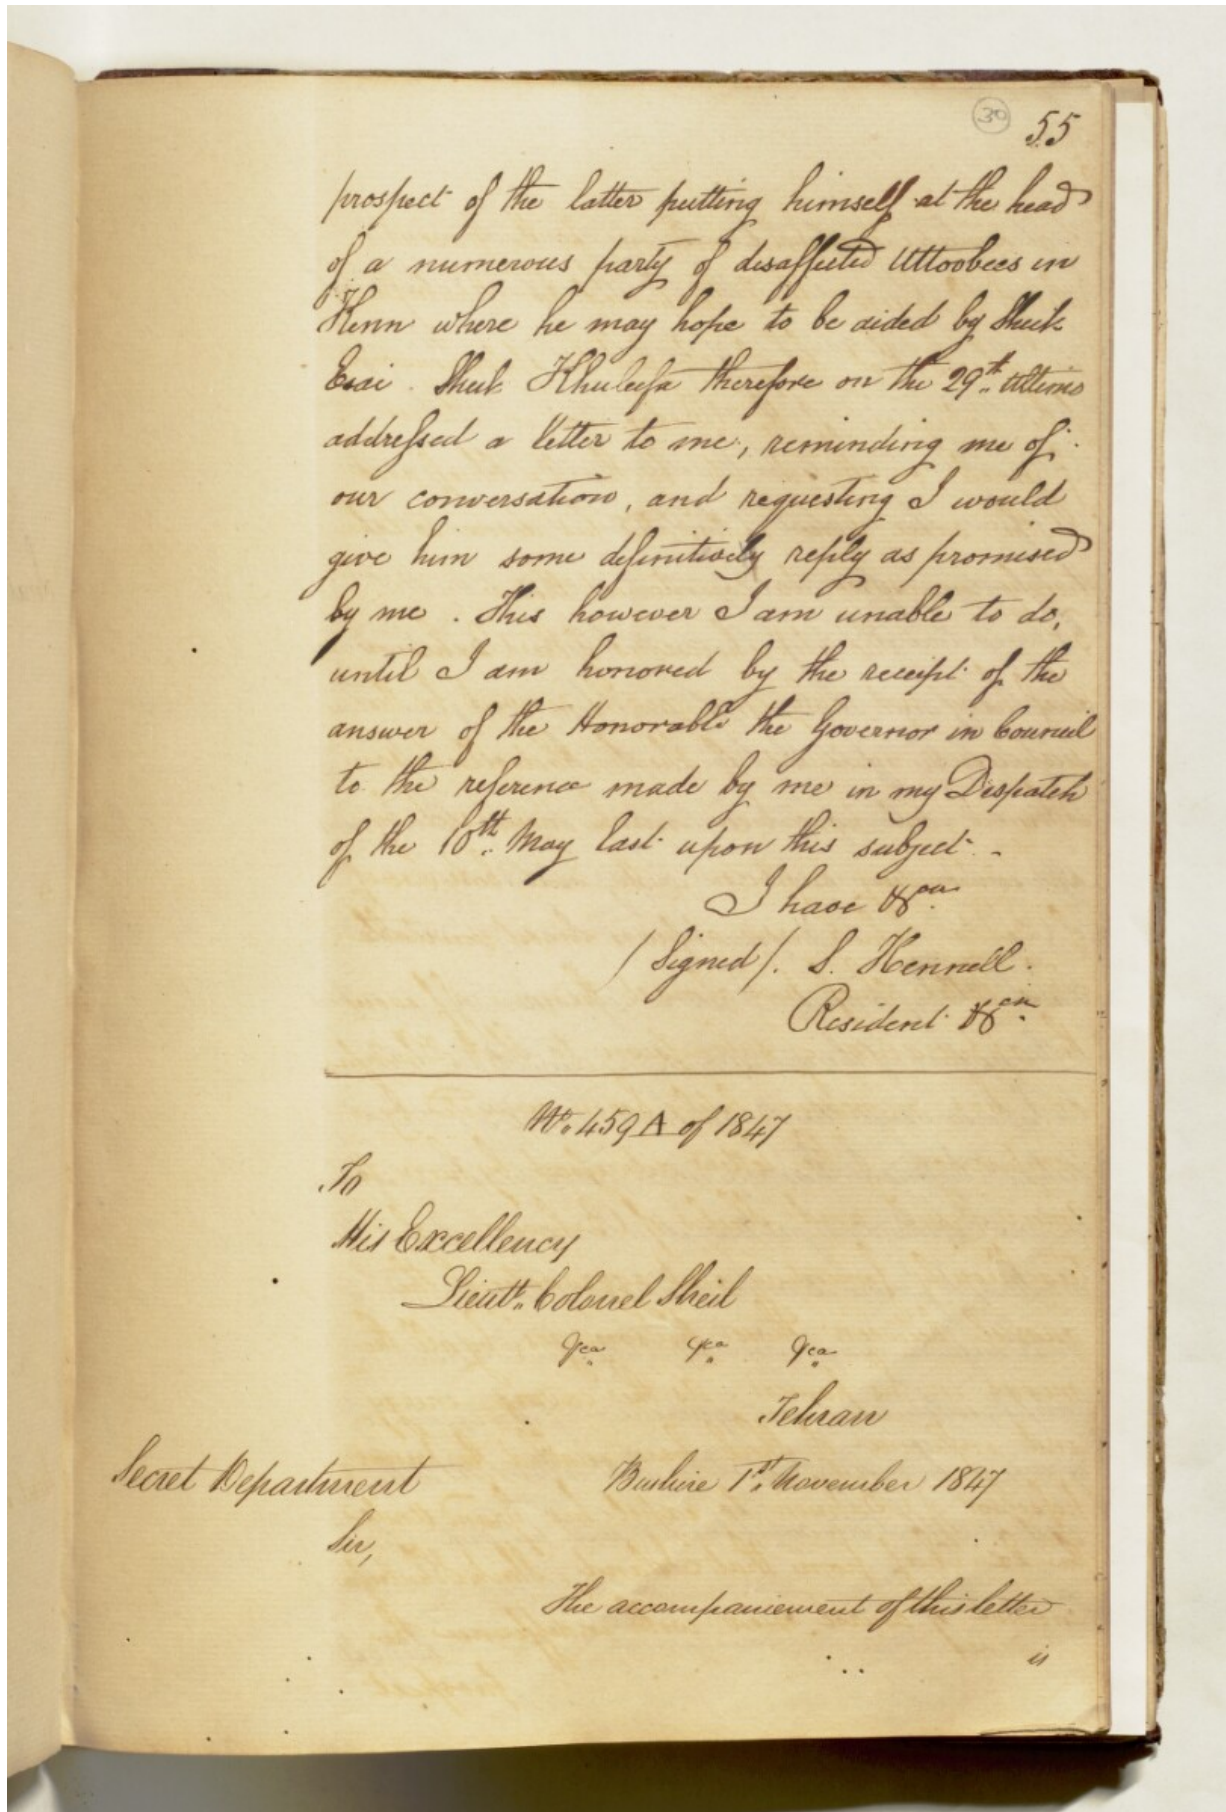 30 55
prospect of the latter putting himself at the head
of a numerous party of disaffected Uttoobees in
Kenn where he may hope to be aided by Sheik
Esai. Sheik Khuleefa therefore on the 29th. Ultimo
addressed a letter to me, reminding me of
our conversation, and requesting I would
give him some definitively reply as promised
by me. This however I am unable to do,
until I am honored by the receipt of the
answer of the Honorable the Governor in Council
to the reference made by me in my Despatch
of the 10th. May last upon this subject. -
I have &ca.
/Signed/. S. Hennell.
Resident &ca.
No. 459 A of 1847
To
His Excellency
Lieutt. Colonel Sheil
&ca. &ca. &ca.
Tehran
Secret Department Bushire 1st. November 1847
Sir,
The accompaniement of this letter
is